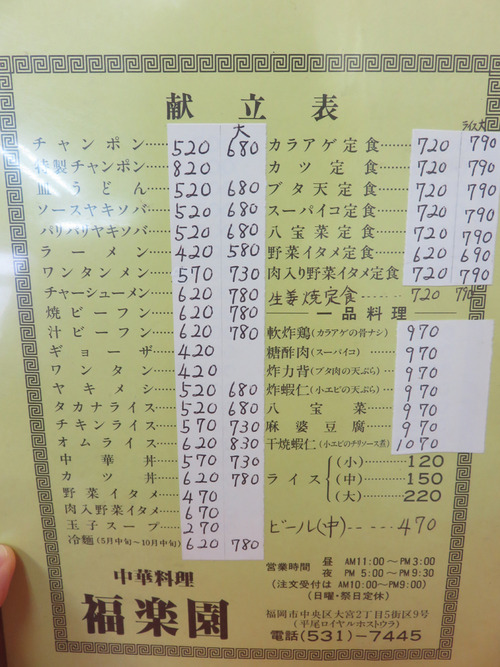 献立表
大
チャンポン……520 680
特製チャンポン 820
皿うどん……520 680
ソースヤキソバ……520 680
バリバリヤキソバ……520 680
ラーメン……420 580
ワンタンメン……570 730
チャーシューメン……620 780
焼ビーフン……620 780
汁ビーフン……620 780
ギョーザ……420
ワンタン……420
ヤキメシ……520 680
タカナライス……520 680
チキンライス……570 730
オムライス……620 830
中華丼……570 730
カツ丼……620 780
野菜イタメ……470
肉入野菜イタメ……670
玉子スープ……270
冷麺(5月中旬〜10月中旬)…620 780
ライス大
カラアゲ定食……720 790
カツ定食……720 790
ブタ天定食……720 790
スーパイコ定食……720 790
八宝菜定食……720 790
野菜イタメ定食……620 690
肉入り野菜イタメ定食……720 790
生姜焼定食-----720 790
一品料理
軟炸鶏(カラアゲの骨ナシ) 970
糖酢肉(スーパイコ)…… 970
炸力背(ブタ肉の天ぷら)… 970
炸蝦仁(小エビの天ぷら)… 970
八宝菜…… 970
麻婆豆腐…… 970
干焼蝦仁(小エビのチリソース煮) 1070
(小)……120
ライス (中)……150
(大)……220
ビール(中)-----470
営業時間 昼 AM11:00〜PM3:00
夜 PM 5:00〜PM9:30
(注文受付は AM10:00〜PM9:00)
(日曜・祭日定休)
中華料理
福楽園
福岡市中央区大宮2丁目5街区9号
(平尾ロイヤルホストウラ)
電話(531)-7445